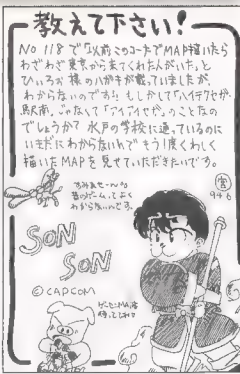 教えて下さい!
No 118で「以前このコーナーでMAP描いたら
わざわざ東京から来てくれた人がいた。」と
ひいろお様のハガキが載っていましたが、
わからないのです! もしかして「ハイテクセガ
駅南」じゃなくて「アイアイセガ」のことなの
でしょうか? 水戸の学校に通っているのに
いまだにわからないんですもう!度くわしく
描いたMAPを見せていただきたいです。
すみませーん
昔のゲームってよく
わからないのです。
宮
946
SON
SON
©CAPCOM